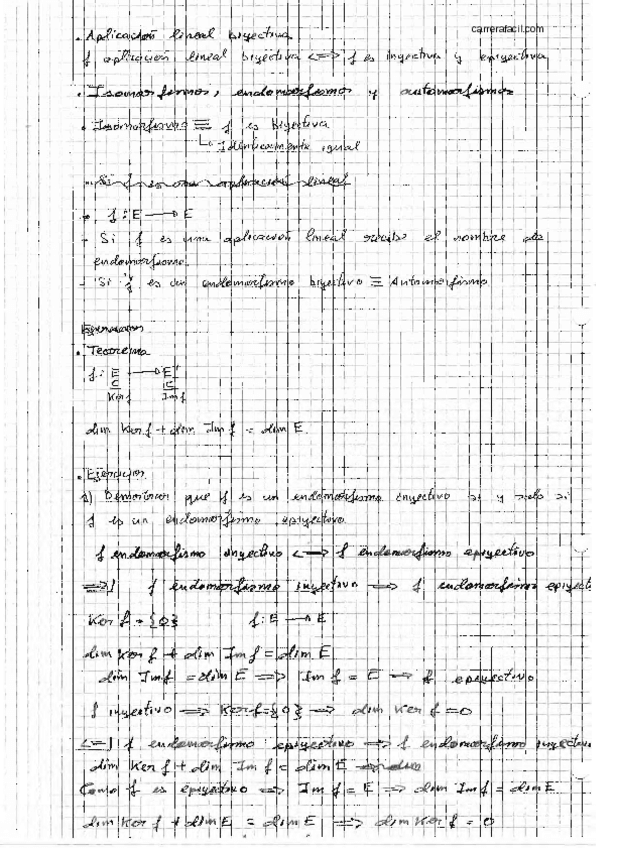 carrerafacil.com
· Aplicación lineal biyectiva
f aplicación lineal biyectiva <=> f es inyectiva y epiyectiva
· Isomorfismos, endomorfismos y automorfismos
· Isomorfismo ≡ f es biyectiva
↳ Idénticamente igual
· Si f es una aplicación lineal
· f: E → E
- Si f es una aplicación lineal recibe el nombre de
endomorfismo
- Si f es un endomorfismo biyectivo ≡ Automorfismo
· Teorema
f: E → E'
⊆ ⊆
Ker f Im f
dim Ker f + dim Im f = dim E
· Ejercicios
1) Demostrar que f es un endomorfismo inyectivo si y solo si
f es un endomorfismo epiyectivo
f endomorfismo inyectivo <=> f endomorfismo epiyectivo
=>| f endomorfismo inyectivo => f endomorfismo epiyect
Ker f = {0} f: E → E
dim Ker f + dim Im f = dim E
dim Im f = dim E => Im f = E => f epiyectivo
f inyectivo => Ker f = {0} => dim Ker f = 0
<=| f endomorfismo epiyectivo => f endomorfismo inyectivo
dim Ker f + dim Im f = dim E
Como f es epiyectivo => Im f = E => dim Im f = dim E
dim Ker f + dim E = dim E => dim Ker f = 0